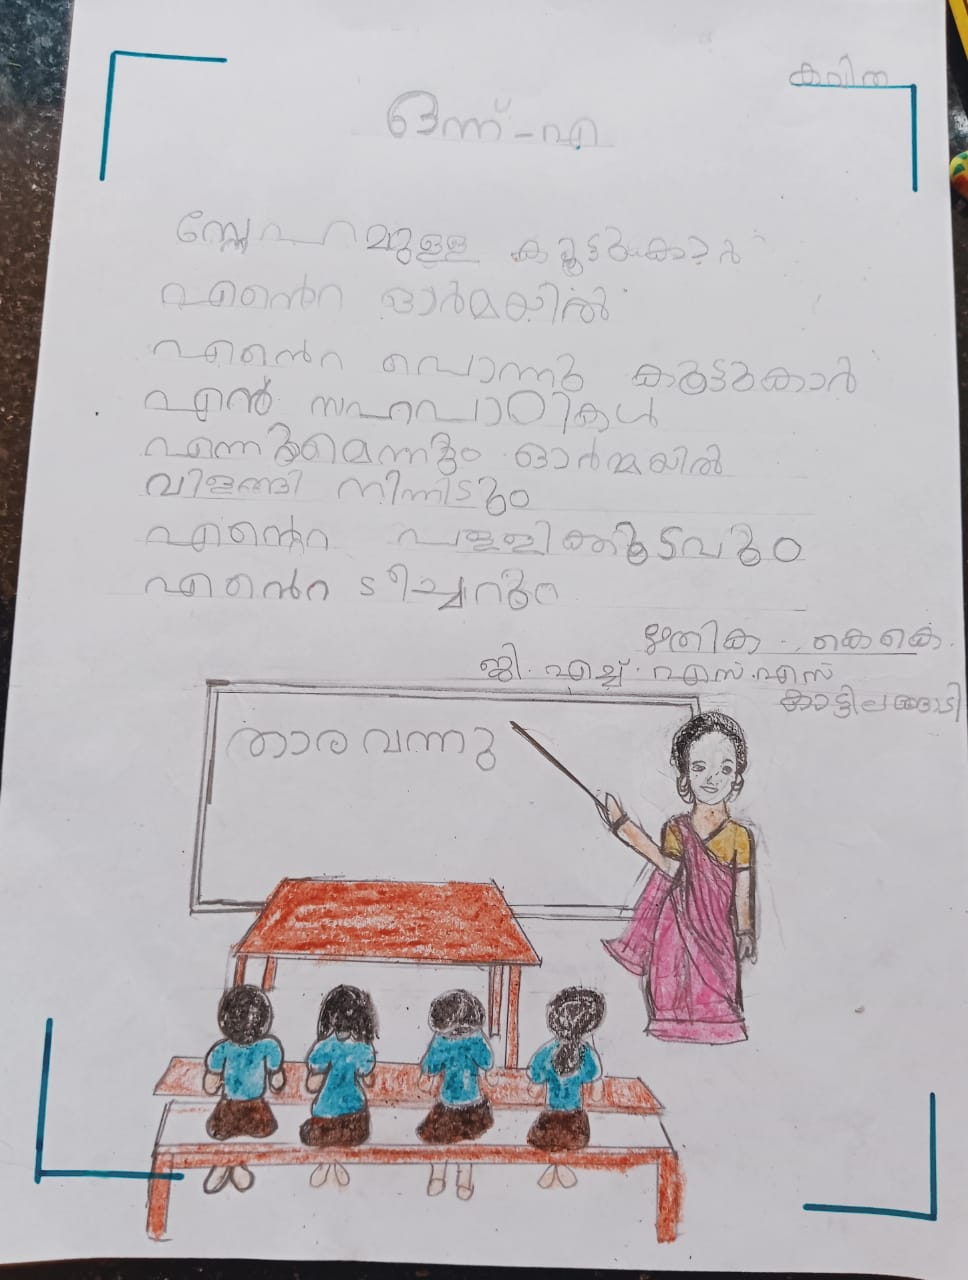 കവിത
ഒന്ന് - എ
സ്നേഹമുള്ള കൂട്ടുകാർ
എൻെറ ഓർമയിൽ
എൻെറ പൊന്നു കൂട്ടുകാർ
എൻ സഹപാഠികൾ
എന്നുമെന്നും ഓർമ്മയിൽ
വിളങ്ങി നിന്നിടും
എൻെറ പള്ളിക്കൂടവും
എൻെറ ടീച്ചറും
കെ കെ.
ജി. എച്ച്. എസ്. എസ്
കാട്ടിലങ്ങാടി
താര വന്നു